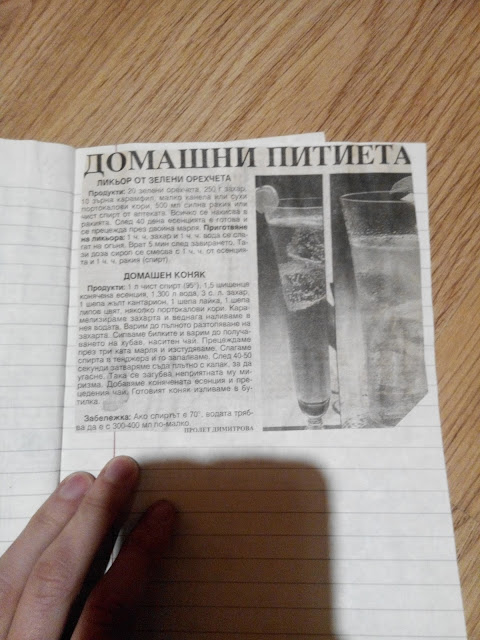 ДОМАШНИ ПИТИЕТА
ЛИКЬОР ОТ ЗЕЛЕНИ ОРЕХЧЕТА
Продукти: 20 зелени орехчета, 250 г захар,
10 зърна карамфил, малко канела или сухи
портокалови кори, 500 мл силна ракия или
чист спирт от аптеката. Всичко се накисва в
ракията. След 40 дена есенцията е готова и
се прецежда през двойна марля. Приготвяне
на ликьора: 1 ч. ч. захар и 1 ч. ч. вода се сла-
гат на огъня. Врат 5 мин след завирането. Та-
зи доза сироп се смесва с 1 ч. ч. от есенция-
та и 1 ч. ч. ракия (спирт).
ДОМАШЕН КОНЯК
Продукти: 1 л чист спирт (96°), 1,5 шишенце
конячена есенция, 1,300 л вода, 3 с. л. захар,
1 шепа жълт кантарион, 1 шепа лайка, 1 шепа
липов цвят, няколко портокалови кори. Кара-
мелизираме захарта и веднага наливаме в
нея водата. Варим до пълното разтопяване на
захарта. Сипваме билките и варим до получа-
ването на хубав, наситен чай. Прецеждаме
през три ката марля и изстудяваме. Слагаме
спирта в тенджера и го запалваме. След 40-50
секунди затваряме съда плътно с капак, за да
угасне. Така се загубва неприятната му ми-
ризма. Добавяме конячената есенция и пре-
цедения чай. Готовият коняк изливаме в бу-
тилка.
Забележка: Ако спиртът е 70°, водата тряб-
ва да е с 300-400 мл по-малко.
ПРОЛЕТ ДИМИТРОВА